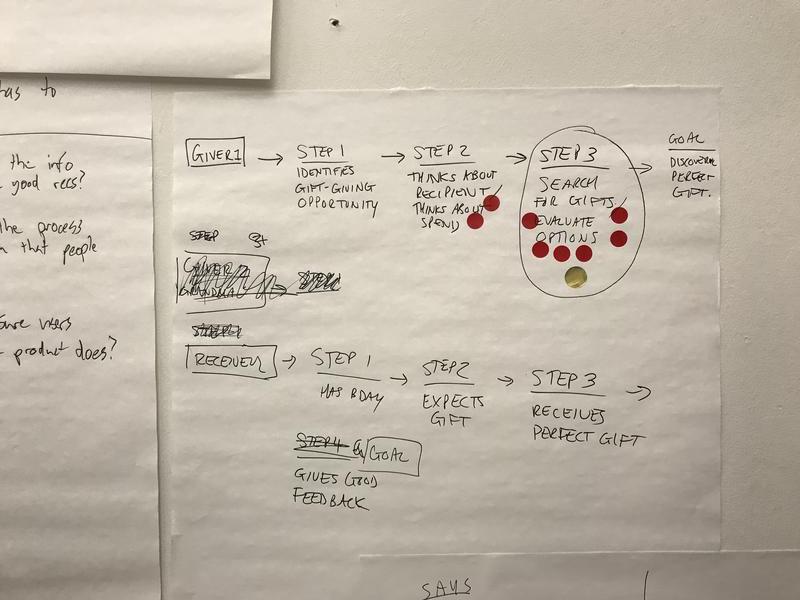 has to
the info
good recs?
the process
that people
users
product does?
GIVER 1
STEP 1
IDENTIFIES
GIFT-GIVING
OPPORTUNITY
STEP 2
THINKS ABOUT
RECIPIENT/
THINKS ABOUT
SPEND
STEP 3
SEARCH
FOR GIFTS/
EVALUATE
OPTIONS
GOAL
PERFECT
GIFT.
STEP
GIVER
GRANDMA
RECEIVER
STEP 1
HAS BDAY
STEP 2
EXPECTS
GIFT
STEP 3
RECEIVES
PERFECT GIFT
STEP 4
GOAL
GIVES GOOD
FEEDBACK
SAYS